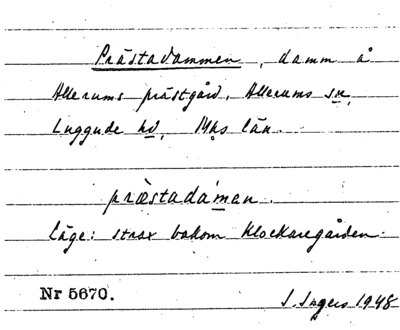 Prästadammen, damm å
Allerums prästgård, Allerums sn,
Luggude hd, Mhs län.
præstadáman.
Läge: strax bakom Klockaregården.
Nr 5670. S. Ingers 1948